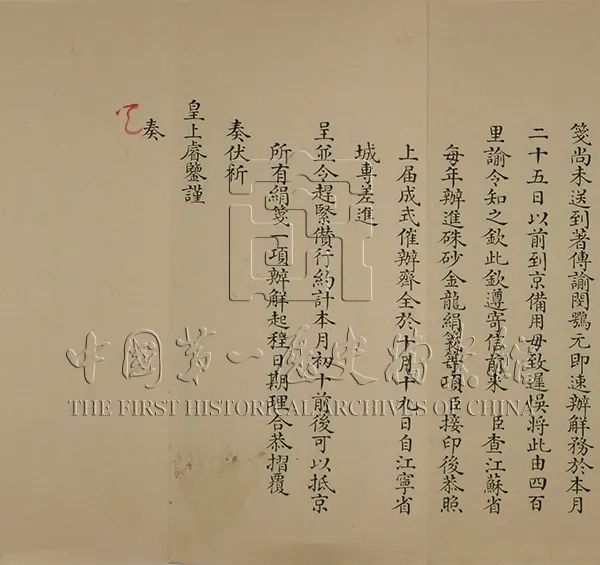 箋尚未送到著傳諭閔鶚元即速辦解務於本月
二十五日以前到京備用毋致遲悞將此由四百
里諭令知之欽此欽遵寄信前來臣查江蘇省
每年辦進硃砂金龍絹箋等項臣接印後恭照
上届成式催辦齊全於十月十九日自江寧省
城專差進
呈並令趕緊儹行約計本月初十前後可以抵京
所有絹箋一項辦解起程日期理合恭摺覆
奏伏祈
皇上睿鑒謹
奏
中國第一歷史檔案館
THE FIRST HISTORICAL ARCHIVES OF CHINA